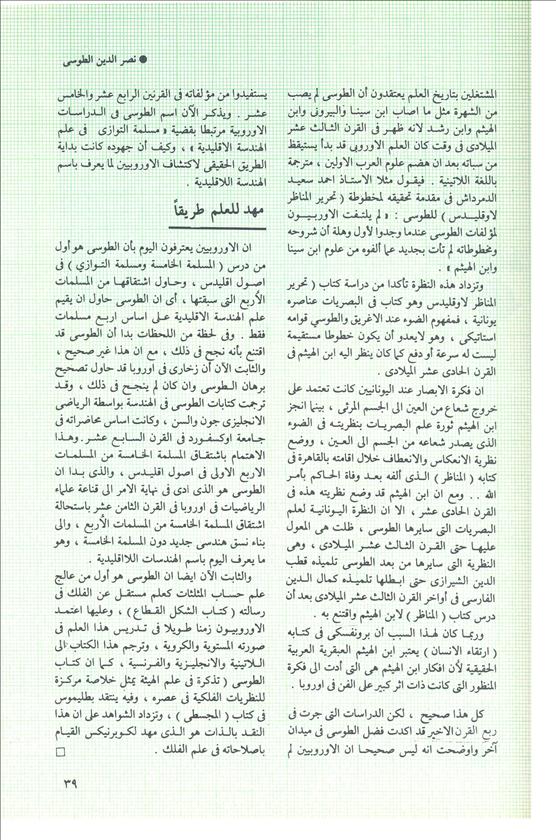 ● نصر الدين الطوسى
المشتغلين بتاريخ العلم يعتقدون أن الطوسى لم يصب
من الشهرة مثل ما اصاب ابن سينا والبيرونى وابن
الهيثم وابن رشد لانه ظهر فى القرن الثالث عشر
الميلادى فى وقت كان العلم الاوروبى قد بدأ يستيقظ
من سباته بعد ان هضم علوم العرب الاولين ، مترجمة
باللغة اللاتينية . فيقول مثلا الاستاذ احمد سعيد
الدمرداش فى مقدمة تحقيقه لمخطوطة ( تحرير المناظر
لاوقليدس ) للطوسى : « لم يلتفت الاوربيون
لمؤلفات الطوسى عندما وجدوا لأول وهلة أن شروحه
ومخطوطاته لم تأت بجديد عما ألفوه من علوم ابن سينا
وابن الهيثم » .
وتزداد هذه النظرة تأكدا من دراسة كتاب ( تحرير
المناظر لاوقليدس وهو كتاب فى البصريات عناصره
يونانية ، فمفهوم الضوء عند الاغريق والطوسي قوامه
استاتيكى ، وهو لايعدو أن يكون خطوطا مستقيمة
ليست له سرعة أو دفع كما كان ينظر اليه ابن الهيثم فى
القرن الحادى عشر الميلادى .
ان فكرة الابصار عند اليونانيين كانت تعتمد على
خروج شعاع من العين الى الجسم المرئى ، بينما انجز
ابن الهيثم ثورة علم البصريات بنظريته فى الضوء
الذى يصدر شعاعه من الجسم الى العين ، ووضع
نظرية الانعكاس والانعطاف خلال اقامته بالقاهرة فى
كتابه ( المناظر ) الذى ألفه بعد وفاة الحاكم بأمر
الله .. ومع ان ابن الهيثم قد وضع نظريته هذه فى
القرن الحادى عشر ، الا ان النظرة اليونانية لعلم
البصريات التى سايرها الطوسى ، ظلت هى المعول
عليها حتى القرن الثالث عشر الميلادى ، وهى
النظرية التى سايرها من بعد الطوسى تلميذه قطب
الدين الشيرازى حتى ابطلها تلميذه كمال الدين
الفارسى فى أواخر القرن الثالث عشر الميلادى بعد أن
درس كتاب ( المناظر ) لابن الهيثم واقتنع به .
وربما كان لهذا السبب أن برونفسكى فى كتابه
( ارتقاء الانسان ) يعتبر ابن الهيثم العبقرية العربية
الحقيقية لأن افكار ابن الهيثم هى التى أدت الى فكرة
المنظور التى كانت ذات اثر كبير على الفن فى اوروبا .
كل هذا صحيح ، لكن الدراسات التى جرت فى
ربع القرن الاخير قد اكدت فضل الطوسى فى ميدان
آخر واوضحت انه ليس صحيحا ان الاوروبيين لم
يستفيدوا من مؤلفاته فى القرنين الرابع عشر والخامس
عشر . ويذكر الآن اسم الطوسى فى الدراسات
الاوروبية مرتبطا بقضية « مسلمة التوازى فى علم
الهندسة الاقليدية » ، وكيف أن جهوده كانت بداية
الطريق الحقيقى لاكتشاف الاوروبيين لما يعرف باسم
الهندسة اللاقليدية .
مهد للعلم طريقاً
ان الاوروبيين يعترفون اليوم بأن الطوسى هو أول
من درس ( المسلمة الخامسة ومسلمة التوازي ) فى
اصول اقليدس ، وحاول اشتقاقها من المسلمات
الأربع التى سبقتها ، أى ان الطوسى حاول ان يقيم
علم الهندسة الاقليدية على اساس اربع مسلمات
فقط . وفى لحظة من اللحظات بدا أن الطوسى قد
اقتنع بأنه نجح فى ذلك ، مع ان هذا غير صحيح ،
والثابت الآن أن زخارى فى اوروبا قد حاول تصحيح
برهان الطوسى وان كان لم ينجح فى ذلك ، وقد
ترجمت كتابات الطوسى فى الهندسة بواسطة الرياضى
الانجليزى جون والس ، وكانت اساس محاضراته فى
جامعة اوكسفورد فى القرن السابع عشر . وهذا
الاهتمام باشتقاق المسلمة الخامسة من المسلمات
الاربع الاولى فى اصول اقليدس ، والذى بدا ان
الطوسى هو الذى ادى فى نهاية الامر الى قناعة علماء
الرياضيات فى اوروبا فى القرن الثامن عشر باستحالة
اشتقاق المسلمة الخامسة من المسلمات الأربع ، والى
بناء نسق هندسى جديد دون المسلمة الخامسة ، وهو
ما يعرف اليوم باسم الهندسات اللااقليدية .
والثابت الآن ايضا ان الطوسى هو أول من عالج
علم حساب المثلثات كعلم مستقل عن الفلك فى
رسالته ( كتاب الشكل القطاع ) ، وعليها اعتمد
الاوروبيون زمنا طويلا فى تدريس هذا العلم فى
صورته المستوية والكروية ، وترجم هذا الكتاب الى
اللاتينية والانجليزية والفرنسية ، كما ان كتاب
الطوسي ( تذكرة فى علم الهيئة يمثل خلاصة مركزة
للنظريات الفلكية فى عصره ، وفيه ينتقد بطليموس
فى كتاب ( المجسطى ) ، وتزداد الشواهد على ان هذا
النقد بالذات هو الذى مهد لكوبرنيكس القيام
باصلاحاته فى علم الفلك .
٣٩